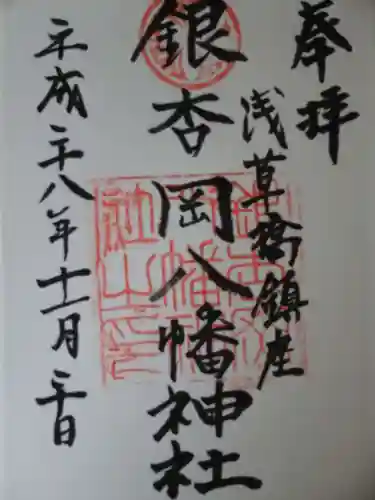 奉拝
浅草橋鎮座
銀杏岡八幡神社
平成二十八年十一月二十日